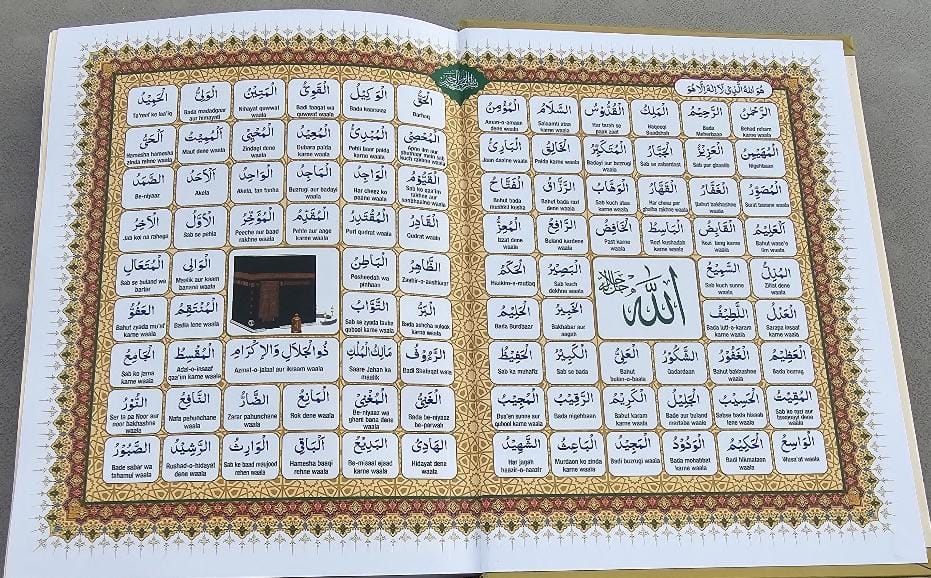 هُوَ اللهُ الَّذِىْ لَا اِلٰهَ اِلَّا هُوَ
الرَّحْمٰنُ
Behad reham karne waala
الرَّحِيْمُ
Bada Meherbaan
الْمَلِكُ
Haqeeqi Baadshah
الْقُدُّوْسُ
Har tarah se paak zaat
السَّلَامُ
Salaamti ataa karne waala
الْمُؤْمِنُ
Amn-o-amaan dene waala
الْمُهَيْمِنُ
Nigehbaan
الْعَزِيْزُ
Sab par ghaalib
الْجَبَّارُ
Sab se zabardast
الْمُتَكَبِّرُ
Badayi aur buzrugi waala
الْخَالِقُ
Paida karne waala
الْبَارِئُ
Jaan daalne waala
الْمُصَوِّرُ
Surat banane waala
الْغَفَّارُ
Bahut bakhashne waala
الْقَهَّارُ
Har cheez par ghalba rakhne waala
الْوَهَّابُ
Sab kuch ataa karne waala
الرَّزَّاقُ
Bahut bada rozi dene waala
الْفَتَّاحُ
Bahut bada mushkil kusha
الْعَلِيْمُ
Bahut wasee' ilm waala
الْقَابِضُ
Rozi tang karne waala
الْبَاسِطُ
Rozi kushadah karne waala
الْخَافِضُ
Past karne waala
الرَّافِعُ
Buland kardene waala
الْمُعِزُّ
Izzat dene waala
الْمُذِلُّ
Zillat dene waala
السَّمِيْعُ
Sab kuch sunne waala
اللهُ
جَلَّ جَلَالُهُ
الْبَصِيْرُ
Sab kuch dekhne waala
الْحَكَمُ
Haakim-e-mutlaq
الْعَدْلُ
Sarapa insaaf karne waala
اللَّطِيْفُ
Bada lutf-o-karam karne waala
الْخَبِيْرُ
Bakhabar aur aagah
الْحَلِيْمُ
Bada Burdbaar
الْعَظِيْمُ
Bada buzrug
الْغَفُوْرُ
Bahut bakhashne waala
الشَّكُوْرُ
Qadardaan
الْعَلِىُّ
Bahut bulan-o-baala
الْكَبِيْرُ
Sab se bada
الْحَفِيْظُ
Sab ka muhafiz
الْمُقِيْتُ
الْحَسِيْبُ
Sabse bada hisaab lene waala
الْجَلِيْلُ
Bade aur buland martabe waala
الْكَرِيْمُ
Bahut karam karne waala
الرَّقِيْبُ
Bada nigehbaan
الْمُجِيْبُ
Dua'en sunne aur qubool karne waala
الْوَاسِعُ
Wasa'at waala
الْحَكِيْمُ
Badi hikmataon waala
الْوَدُوْدُ
Bada mohabbat karne waala
الْمَجِيْدُ
Badi buzrugi waala
الْبَاعِثُ
Murdaon ko zinda karne waala
الشَّهِيْدُ
Har jagah haazir-o-naazir
الْحَقُّ
Barhaq
الْوَكِيْلُ
Bada kaarsaaz
الْقَوِىُّ
Badi taaqat wa quwwat waala
الْمَتِيْنُ
Nihayat quwwat waala
الْوَلِىُّ
Bada madadgaar aur himayati
الْحَمِيْدُ
Ta'reef ke laa'iq
الْمُحْصِى
Apne ilm aur shumaar mein sab kuch rakhne waala
الْمُبْدِئُ
Pehli baar paida karne waala
الْمُعِيْدُ
Dobara paida karne waala
الْمُحْيِى
Zindagi dene waala
الْمُمِيْتُ
Maut dene waala
الْحَىُّ
Hamesha hamesha zinda rehne waala
الْقَيُّوْمُ
Sab ko qaa'im rakhne aur sambhaalne waala
الْوَاجِدُ
Har cheez ko paane waala
الْمَاجِدُ
Buzrugi aur badayi waala
الْوَاحِدُ
Akela, tan tanha
اَلْاَحَدُ
Akela
الصَّمَدُ
Be-niyaaz
الْقَادِرُ
Qudrat waala
الْمُقْتَدِرُ
Puri qudrat waala
الْمُقَدِّمُ
Pehle aur aage karne waala
الْمُؤَخِّرُ
Peeche aur baad rakhne waala
الْاَوَّلُ
Sab se pehla
الْاٰخِرُ
الظَّاهِرُ
Zaahir-o-aashkaar
الْبَاطِنُ
Posheedah wa pinhaan
الْوَالِى
Maalik aur kaam banane waala
الْمُتَعَالِ
Sab se buland wa bartar
الْبَرُّ
Bada achcha sulook karne waala
التَّوَّابُ
Sab se zyada tauba qubool karne waala
الْمُنْتَقِمُ
Badla lene waala
الْعَفُوُّ
Bahut zyada mu'af karne waala
الرَّءُوْفُ
Badi Shafqat waala
مَالِكُ الْمُلْكِ
Saare Jahan ka maalik
ذُو الْجَلَالِ وَالْاِكْرَامِ
Azmat-o-jalaal aur ikraam waala
الْمُقْسِطُ
Adal-o-insaaf qaa'im karne waala
الْجَامِعُ
Sab ko jama karne waala
الْغَنِىُّ
Bada be-niyaaz be-parwah
الْمُغْنِىُ
Be-niyaaz wa ghani bana dene waala
الْمَانِعُ
Rok dene waala
الضَّارُّ
Zarar pahunchane waala
النَّافِعُ
Nafa pahunchane waala
النُّوْرُ
Sar ta pa Noor aur noor bakhashne waala
الْهَادِىُ
Hidayat dene waala
الْبَدِيْعُ
Be-misaal ejaad karne waala
الْبَاقِى
Hamesha baaqi rehne waala
الْوَارِثُ
Sab ke baad maujood rehne waala
الرَّشِيْدُ
Rushad-o-hidayat dene waala
الصَّبُوْرُ
Bade sabar wa tahamul waala